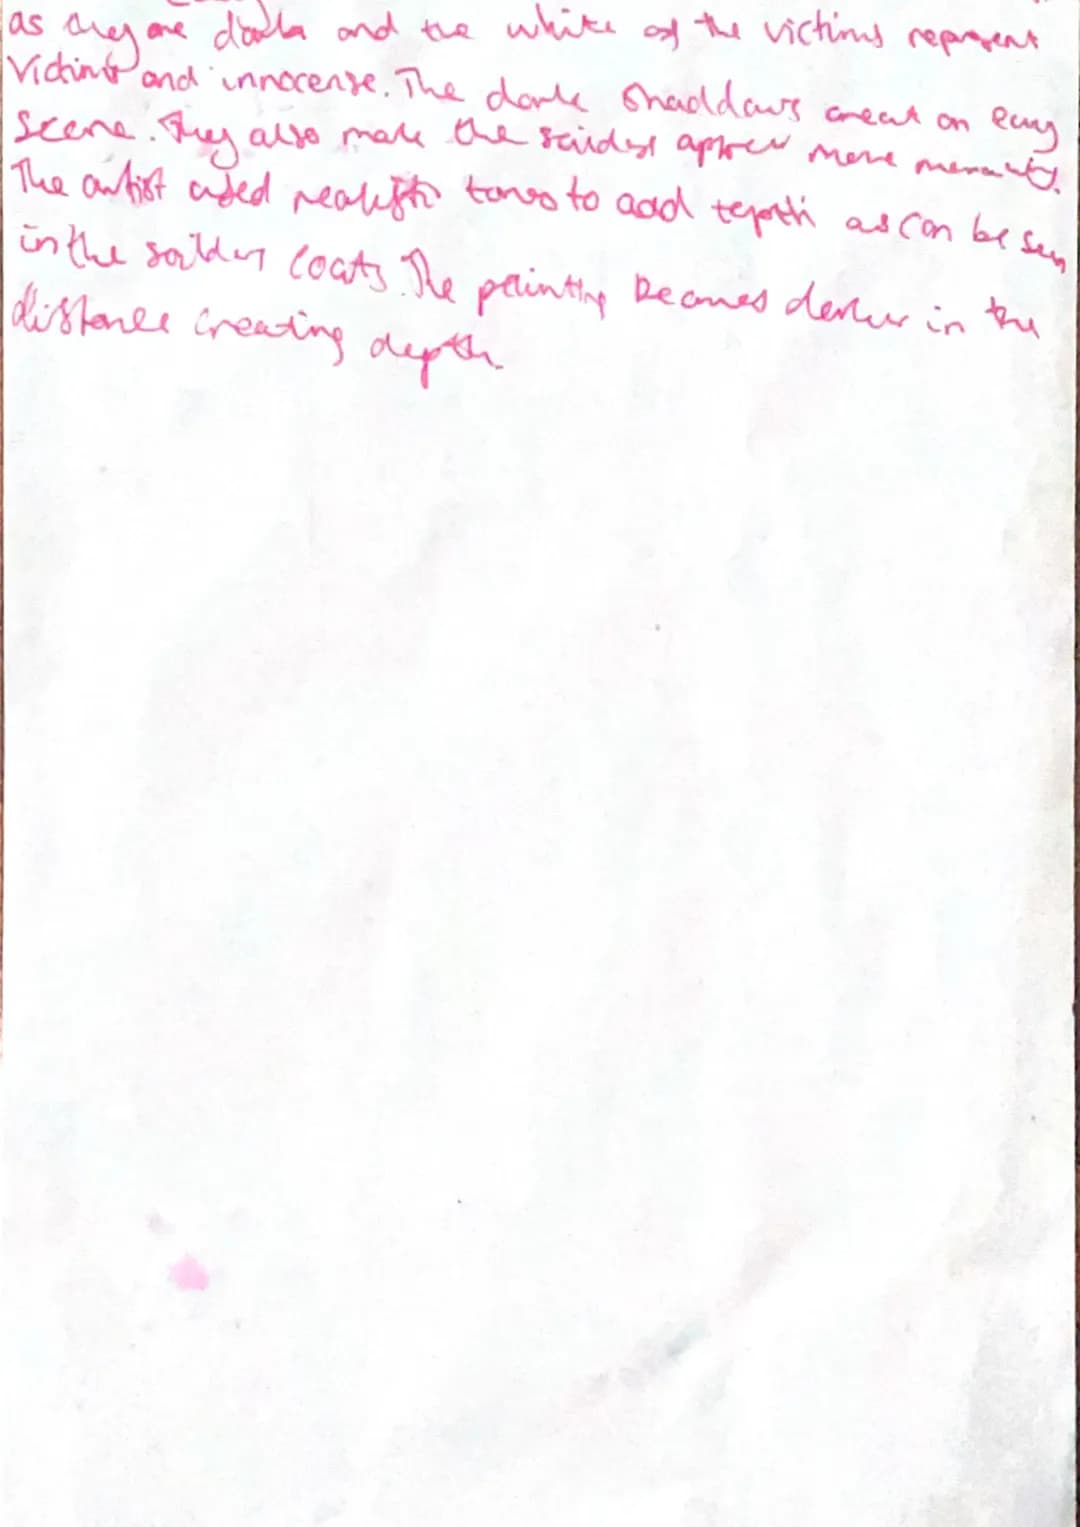 as they are dark and the white of the victims represent
Victims and innocense. The dark shaddows creat an eery
scene. They also make the soilders more
The artist used realistic tones to add tepth as can be seen
in the soilders coats. The painting becomes darker in the
distance creating depth